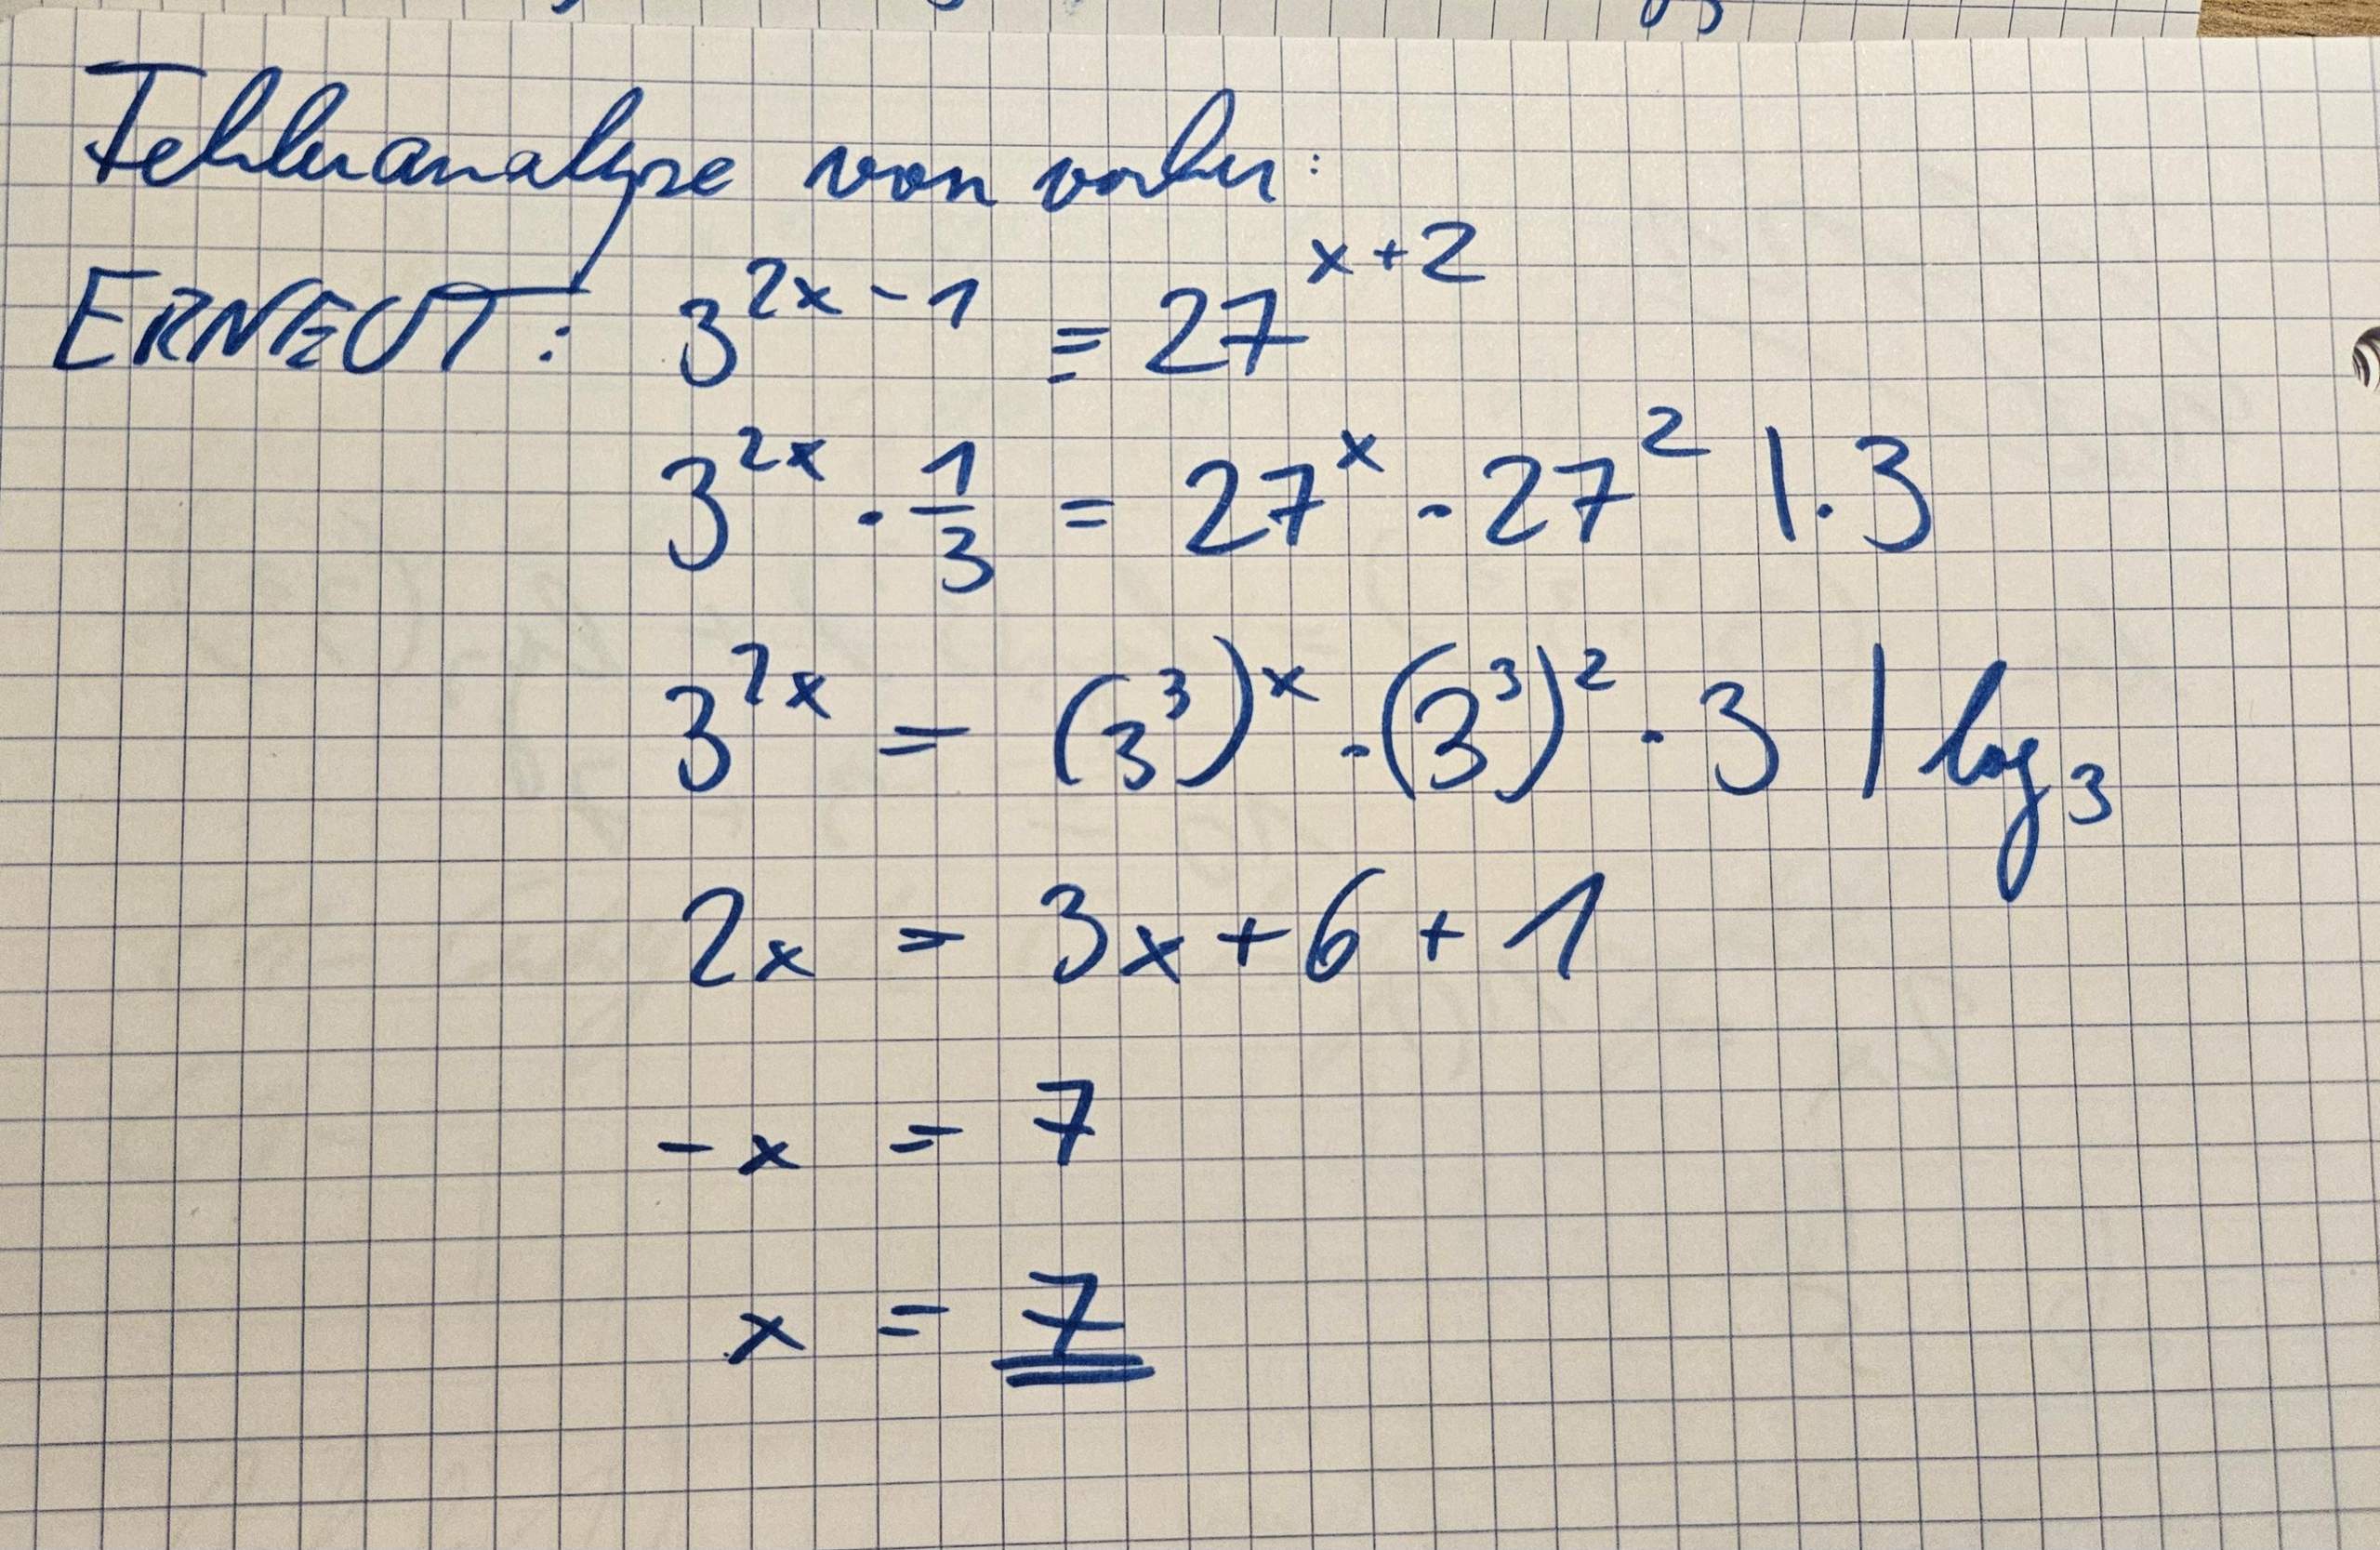 Fehleranalyse von vorher:
ERNEUT: 3^{2x-1} = 27^{x+2}
3^{2x} · \frac{1}{3} = 27^x · 27^2 | · 3
3^{2x} = (3^3)^x · (3^3)^2 · 3 | log_3
2x = 3x + 6 + 1
-x = 7
x = 7